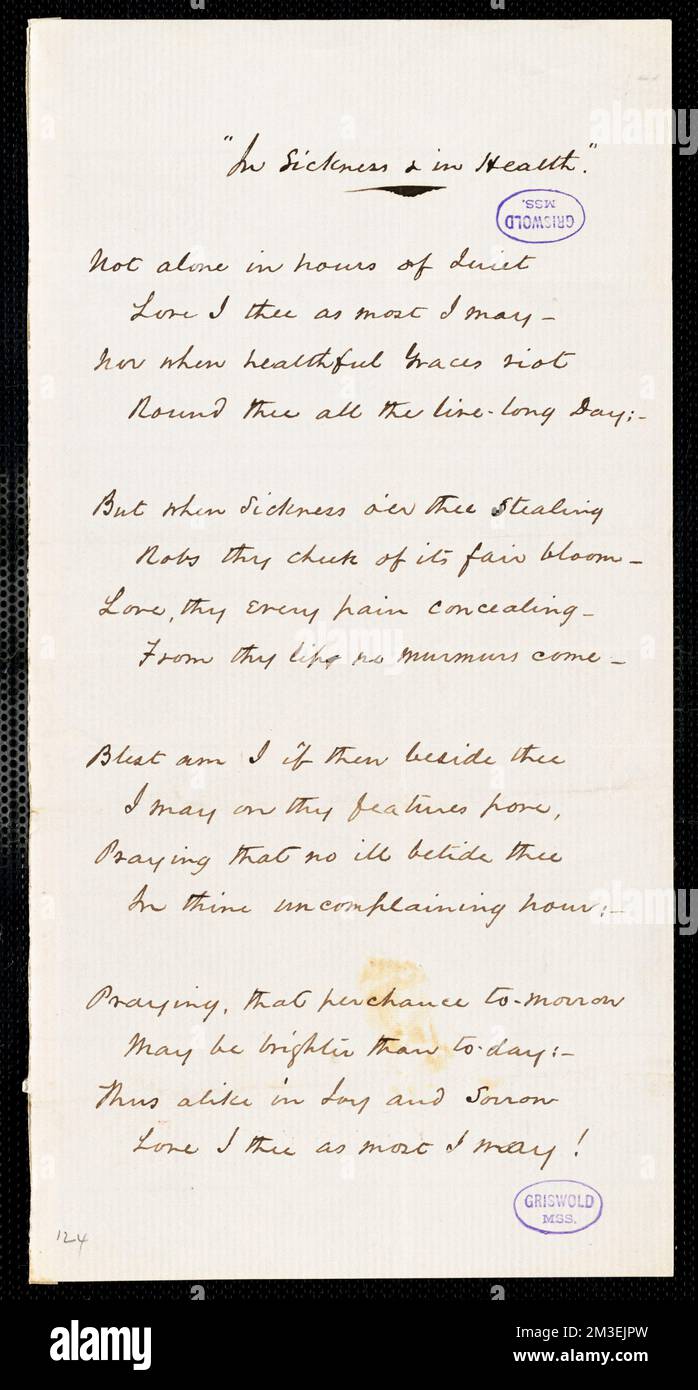 "In Sickness & in Health."
GRISWOLD
MSS.
Not alone in hours of Quiet
Love I thee as most I may –
Nor when healthful Graces riot
Round thee all the live-long Day; –
But when Sickness o'er thee Stealing
Robs thy cheek of its fair bloom –
Love, thy every pain concealing –
From thy lips no murmurs come –
Blest am I if then beside thee
I may on thy features pore,
Praying that no ill betide thee
In thine uncomplaining hour; –
Praying, that perchance to-morrow
May be brighter than to-day: –
Thus alike in Joy and Sorrow
Love I thee as most I may!
GRISWOLD
MSS.
124
alamy
alamy
alamy
alamy
Image ID: 2M3EJPW
www.alamy.com